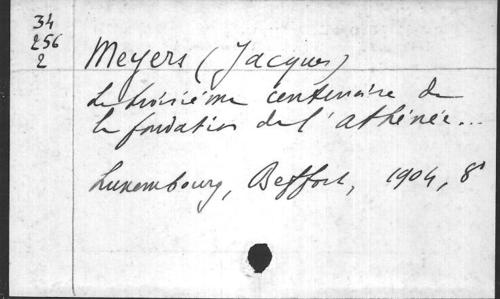 34
256
2
Meyers (Jacques)
Le troisième centenaire de
la fondation de l'athénée...
Luxembourg, Beffort, 1904, 8°